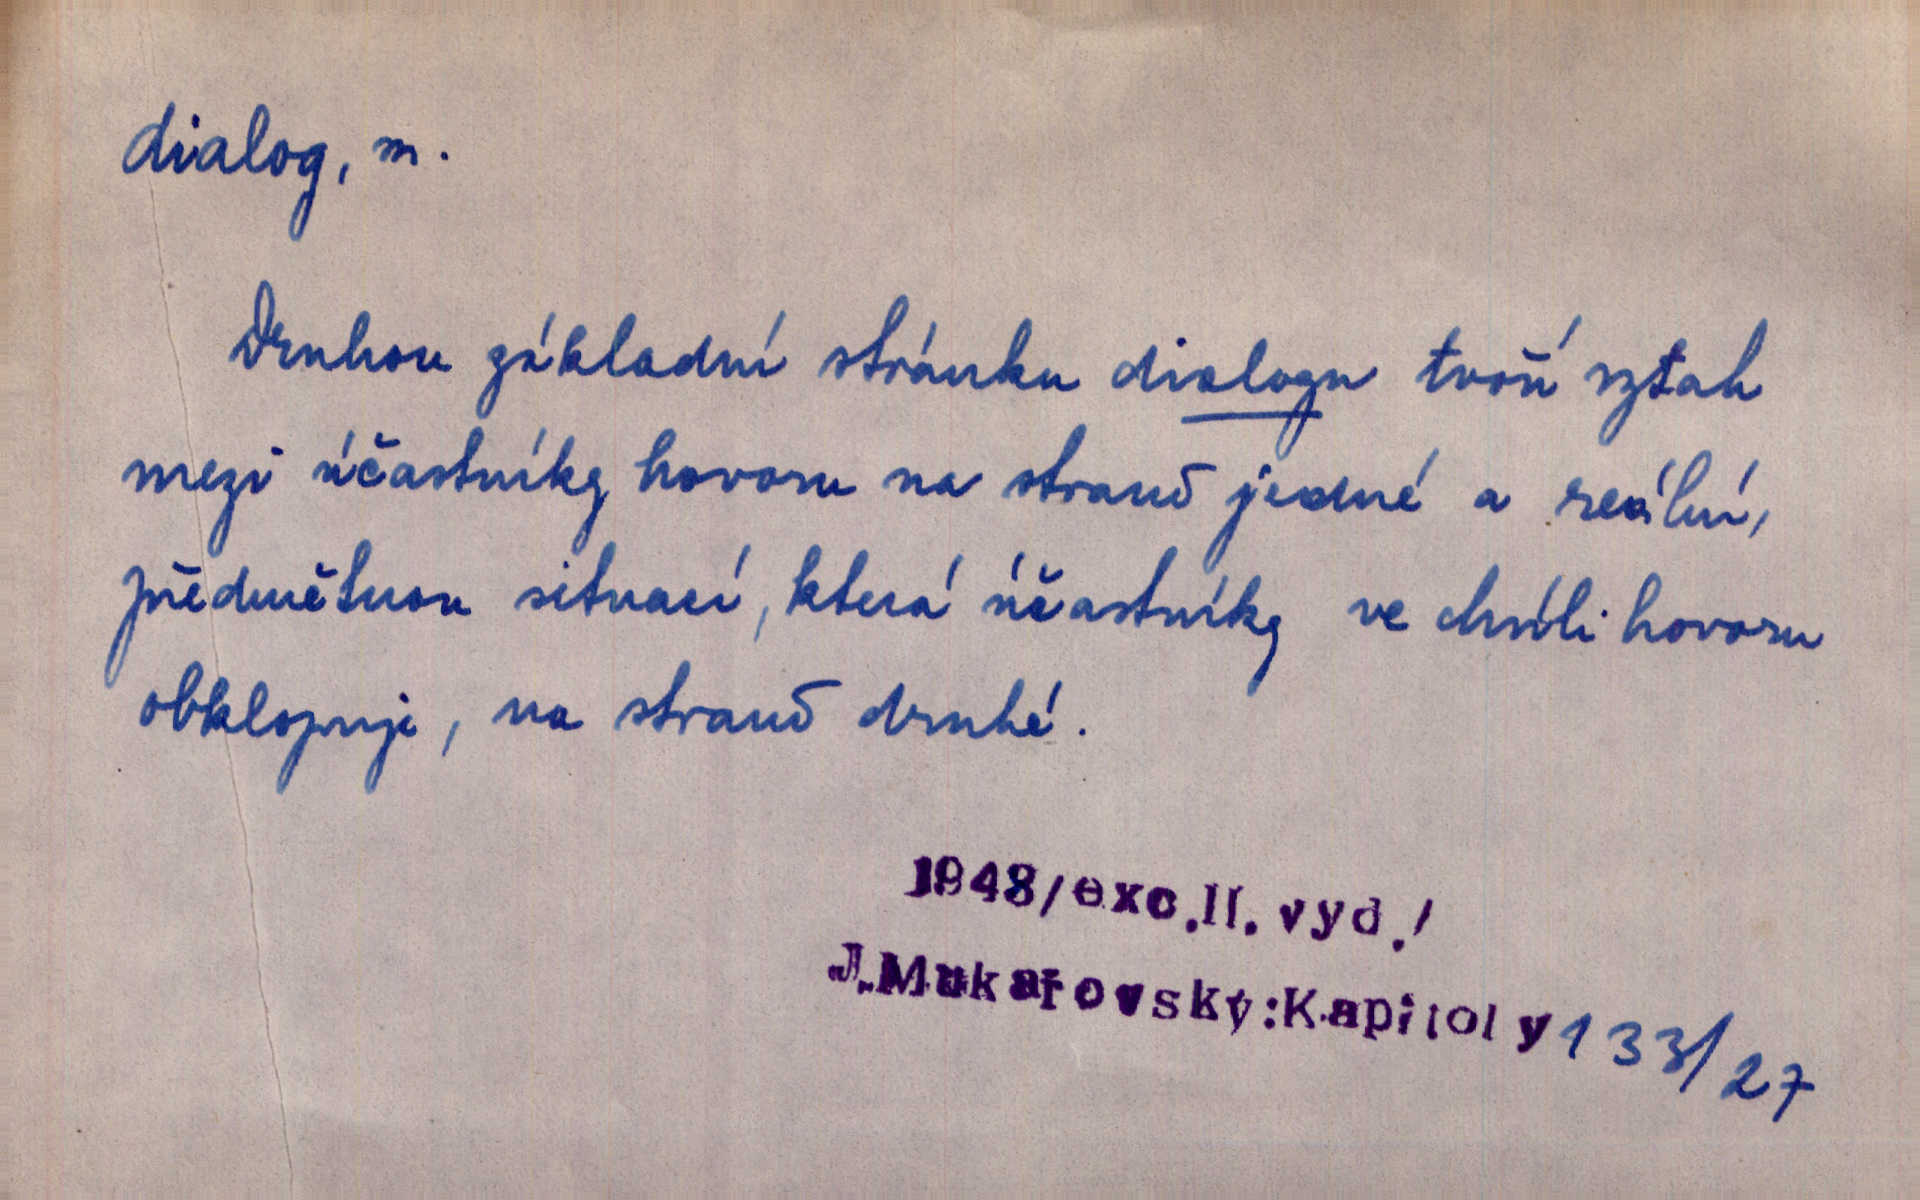 dialog, m.
Druhou základní stránku dialogu tvoří vztah
mezi účastníky hovoru na straně jedné a reální,
předmětnou situací, která účastníky ve chvíli hovoru
obklopuje, na straně druhé.
1948/exc.II.vyd./
J.Mukařovský:Kapitoly 133/27